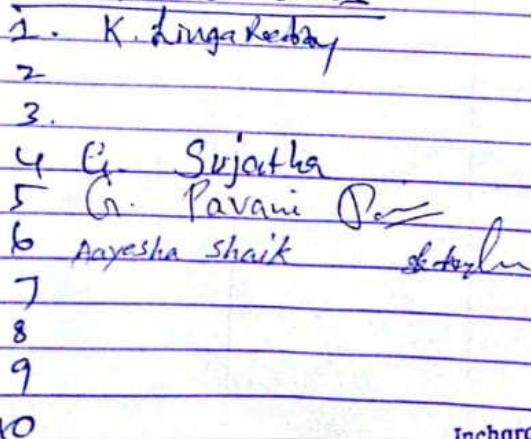 1. K. Linga Reddy
2
3.
4 G. Sujatha
5 G. Pavani
6 Aayesha Shaik
7
8
9
10
Incharg